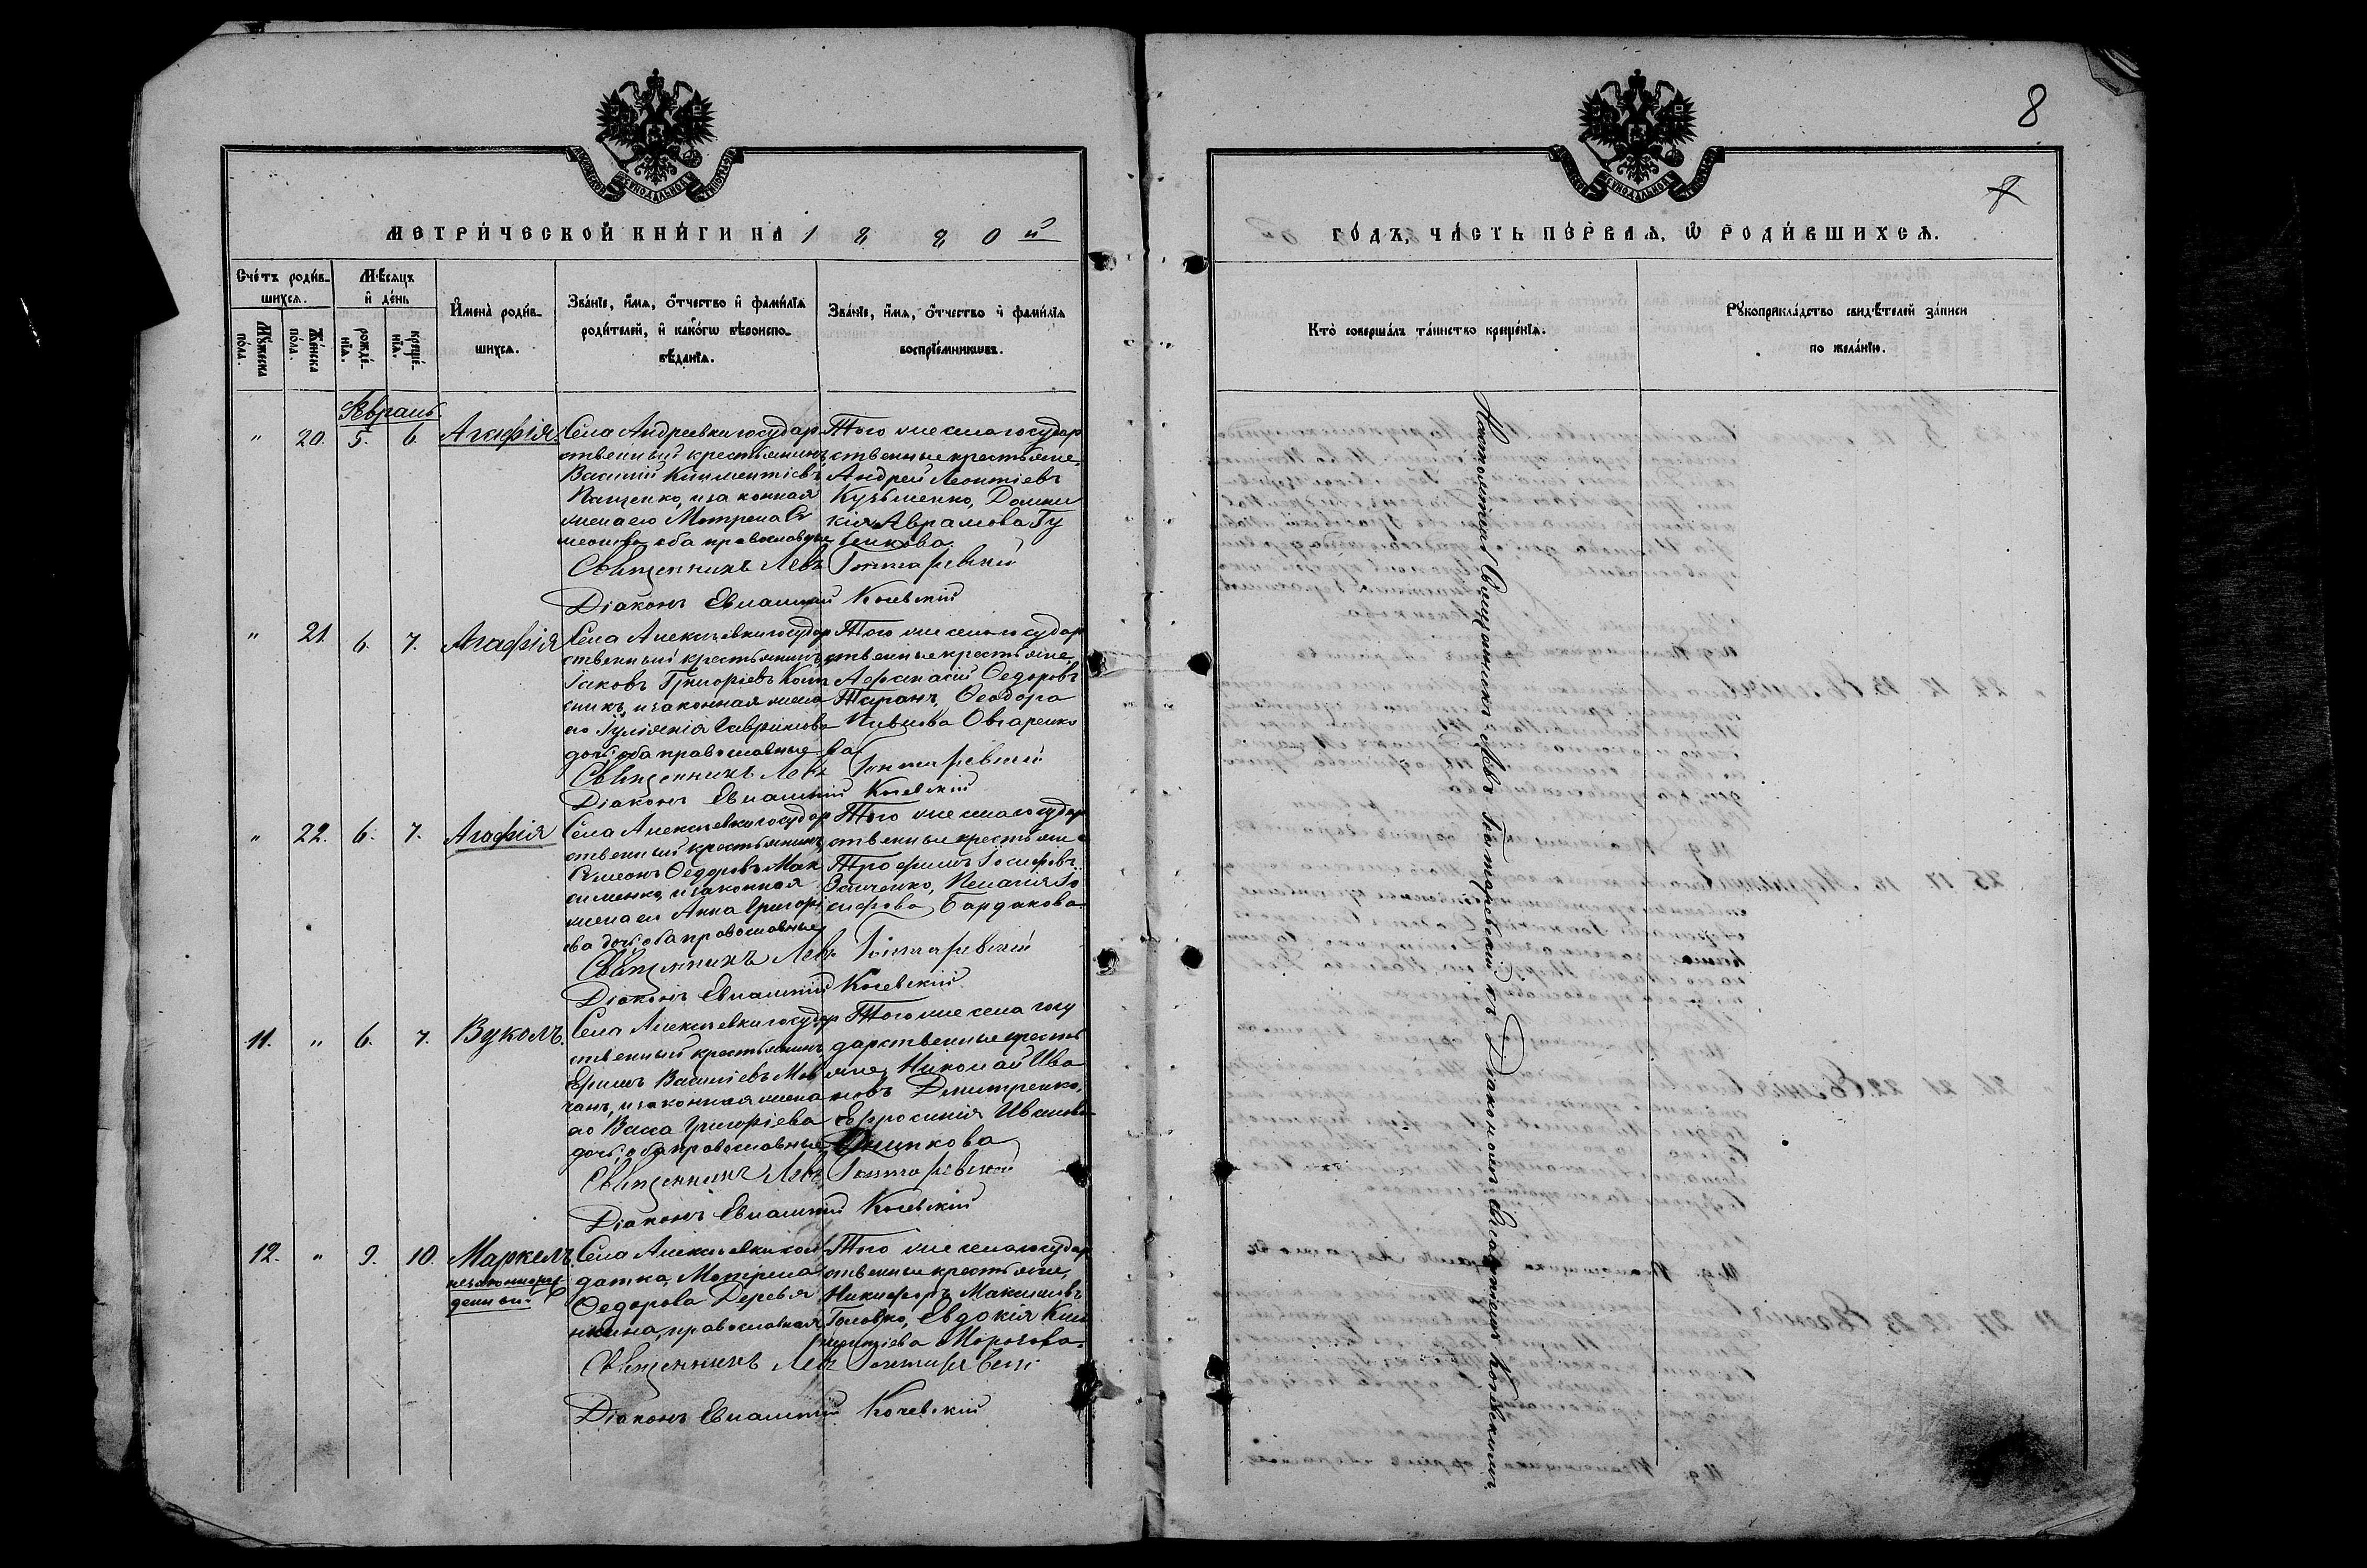 8
8
МЕТРИЧЕСКОЙ КНИГИ НА 1880й
ГОДЪ, ЧАСТЬ ПЕРВАЯ, Ѡ РОДИВШИХСЯ.
Счетъ родив-
шихся.
Мѣсяцъ
и день
Мужеска пола.
Женска пола.
рожде-
нія.
креще-
нія.
Имена родив-
шихся.
Званіе, имя, отчество и фамилія
родителей, и какогѡ вѣроиспо-
вѣданія.
Званіе, имя, отчество и фамилія
воспріемникѡвъ.
Кто совершалъ таинство крещенія.
Рукоприкладство свидѣтелей записи
по желанію.
Февраль.
" 20. 5. 6. Агафія
Села Андреевки государ
ственный крестьянинъ
Василій Климентіевъ
Ващенко, и законная
жена его Матрена Си
меонова оба православные
Того же села государ
ственные крестьяне,
Андрей Леонтіевъ
Кузьменко, Домни
кія Аврамова Гу
Священникъ Левъ Гонтаревскій
Діаконъ Евлампій Кочевскій
" 21 6. 7. Агафія
Села Алексѣевки государ
ственный крестьянинъ
Іаковъ Григоріевъ
и законная жена
его Іуліанія Гавриилова
дочь, оба православные
Того же села государ
ственные крестьяне,
Афанасій Ѳедоровъ
Таранъ, Ѳеодора
Овчаренко
ва
Священникъ Левъ Гонтаревскій
Діаконъ Евлампій Кочевскій
" 22. 6. 7. Агафія
Села Алексѣевки государ
ственный крестьянинъ
Симеонъ Ѳедоровъ Мак
сименко, и законная
жена его Анна Григорі
ева дочь, оба православные
Того же села государ
ственные крестьяне
Трофимъ Іосифовъ
Пелагія Іо
сифова Бардакова
Священникъ Левъ Гонтаревскій
Діаконъ Евлампій Кочевскій
11. " 6. 7. Вуколъ.
Села Алексѣевки государ
ственный крестьянинъ
Ефимъ Василіевъ Мов
чанъ, и законная жена
его Васса Григоріева
дочь, оба православные
Того же села госу
дарственные кресть
яне, Николай Ива
новъ Дмитренко,
Евфросинія Иванова
Священникъ Левъ Гонтаревскій
Діаконъ Евлампій Кочевскій
12. " 9. 10. Маркелъ
незаконнорож
денный
Села Алексѣевки сол
датка, Матрена
Ѳедорова Деревя
нкина, православная
Того же села государ
ственные крестьяне,
Никифоръ Максимовъ
Головко, Евдокія Кли
ментіева Морозова.
Священникъ Левъ Гонтаревскій
Діаконъ Евлампій Кочевскій
Священникъ Левъ Гонтаревскій съ Діакономъ Евлампіемъ Кочевскимъ.